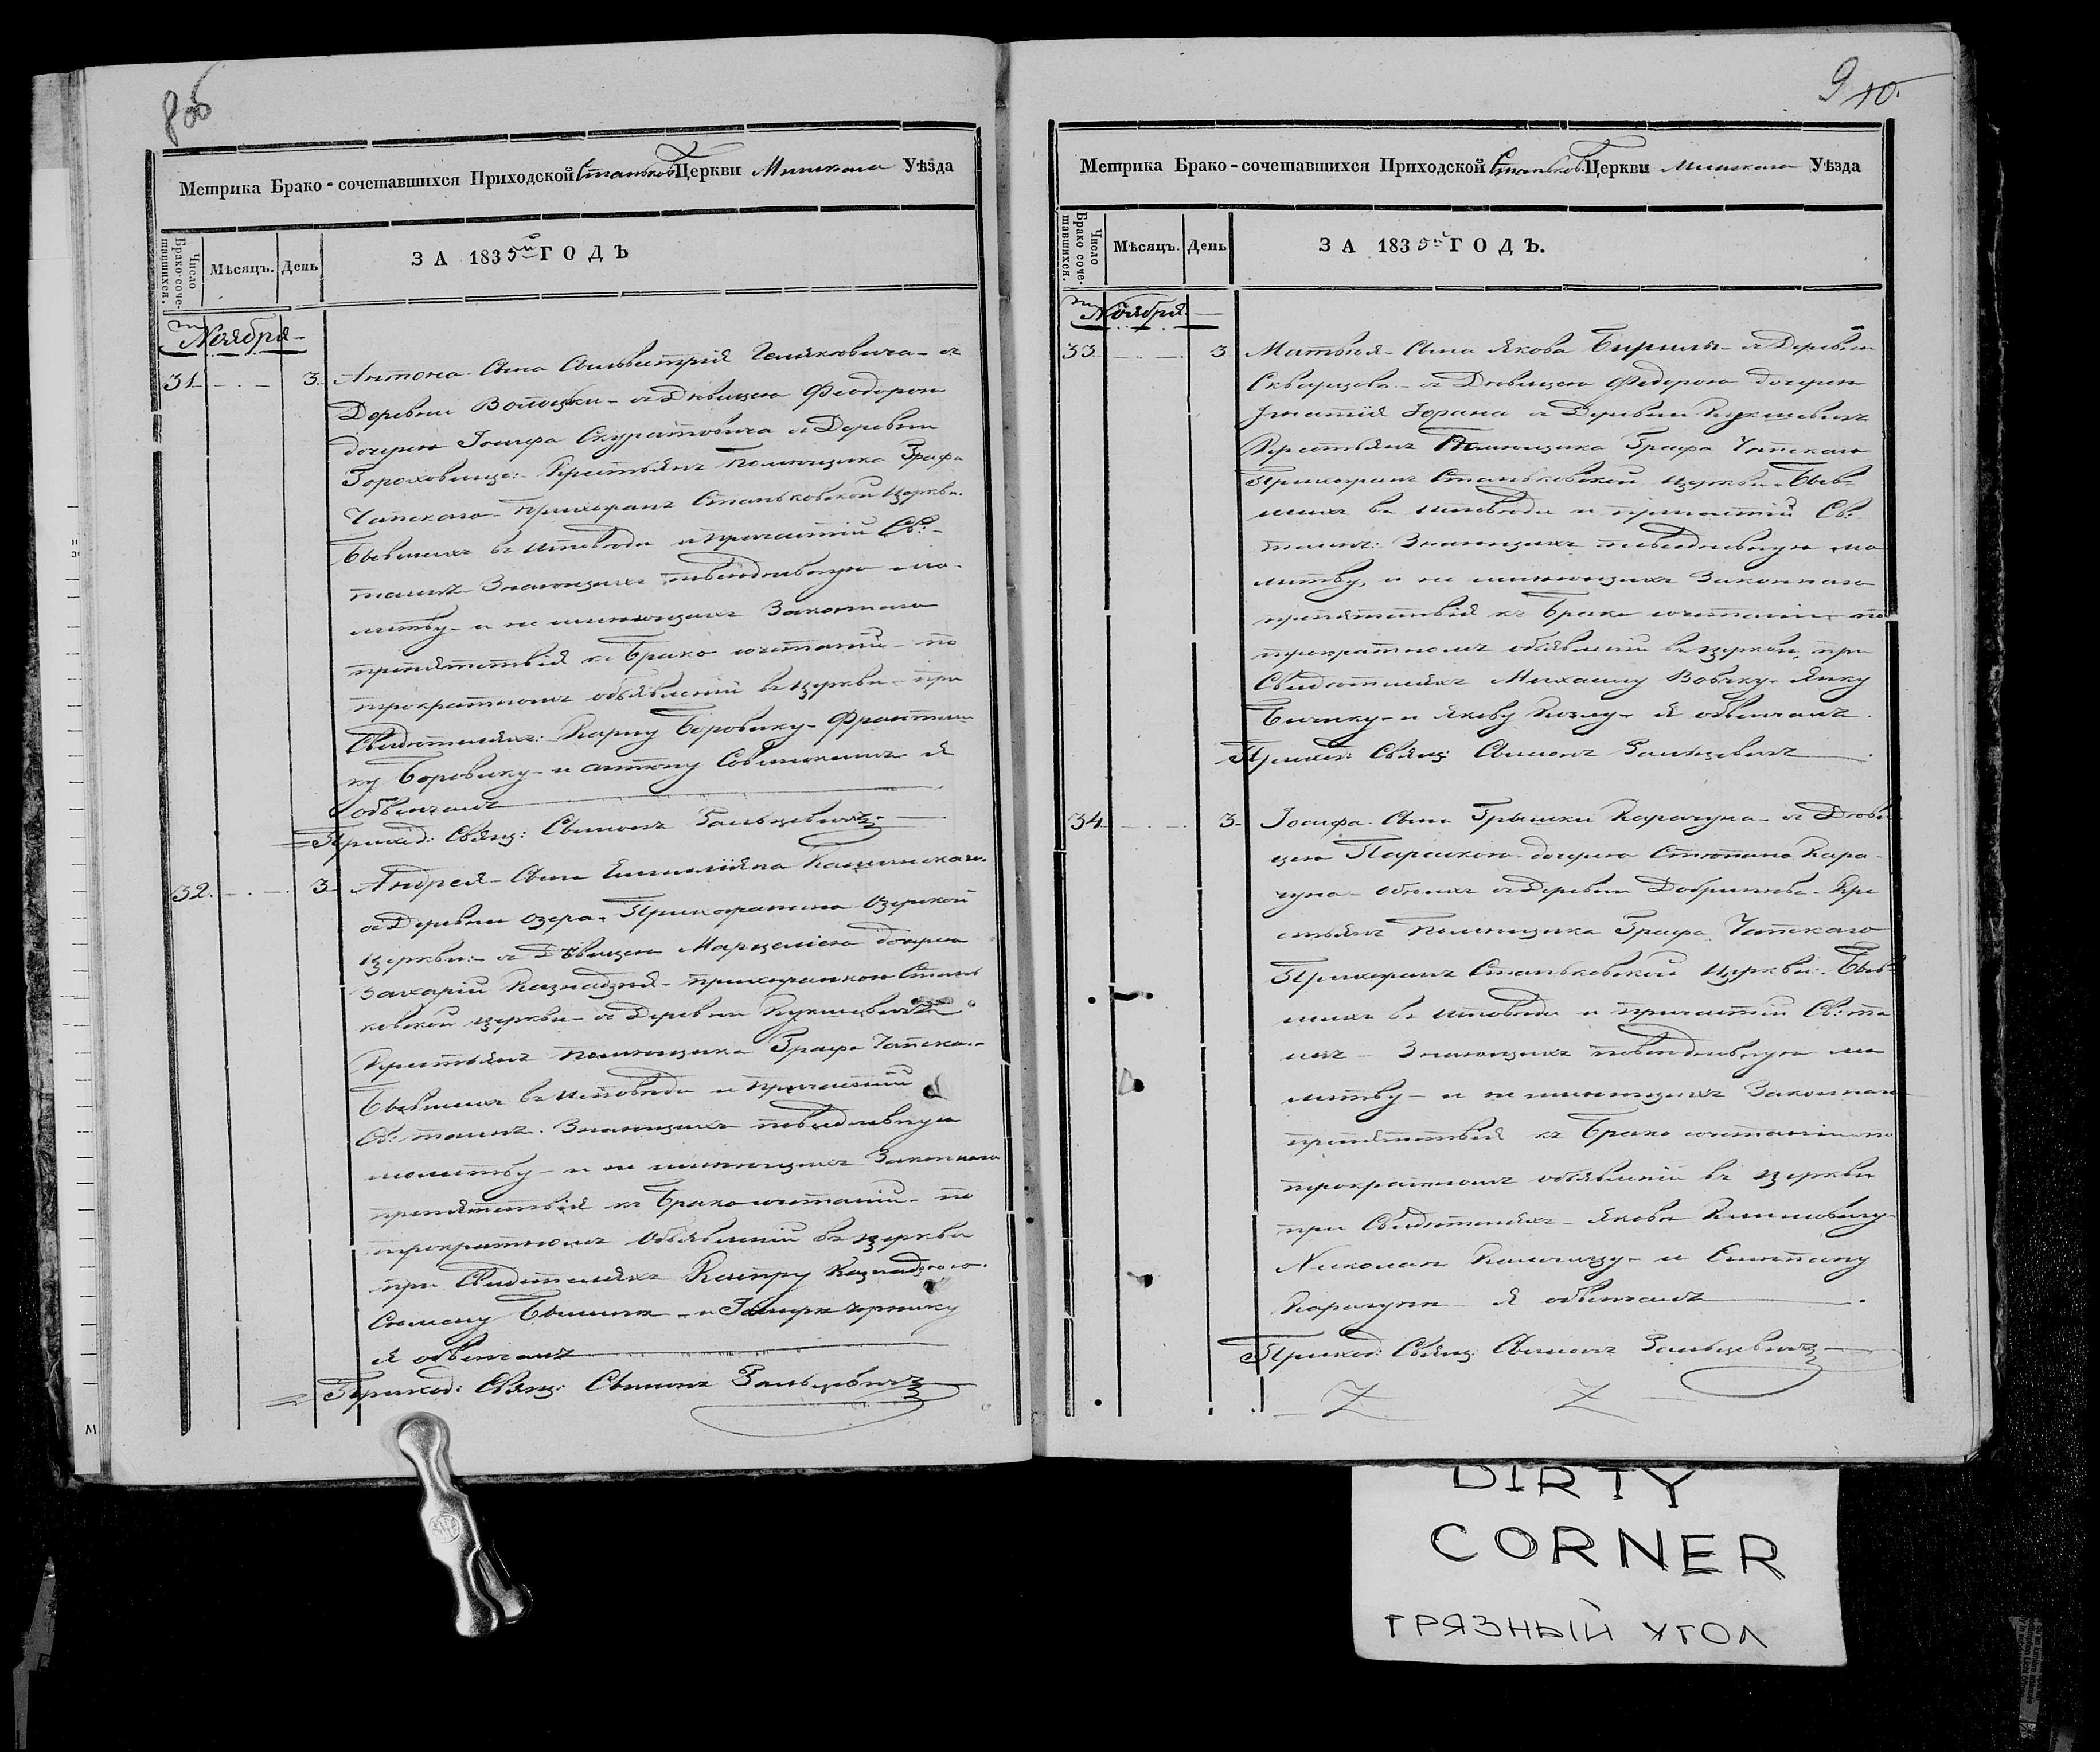 8об
Метрика Брако-сочетавшихся Приходской Станьков: Церкви Минскаго Уѣзда
Число Брако-сочетавшихся.
Мѣсяцъ.
День
ЗА 1835й ГОДЪ
Ноября
31 3. Антона Сына Сильвестрія с
Деревни Волоцки с Дѣвицею Феодорою
дочерью Іосифа Скуратовича с Деревни
Гороховища Крестьянъ Помѣщика Графа
Чапскаго Прихожанъ Станьковской Церкви
Бывшихъ въ исповѣди и причастіи Св:
таинъ Знающихъ повседневную мо
литву и не имѣющихъ Законнаго
препятствія къ Брако сочетанію по
трократномъ объявленіи въ Церкви при
Свидѣтеляхъ: Карпу Боровику
Боровику и антону я
обвенчалъ
Приход: Свящ: Сѵмонъ
32. 3 Андрея Сына Емиліяна Кашинскаго
с Деревни Озера Прихожанина Озерской
Церкви с Дѣвицею Марцеліею дочерью
Захаріи Казнадзѣя прихожанкою Стань
ковской Церкви с Деревни
Крестьянъ помѣщика Графа Чапскаго
Бывшихъ въ исповѣди и Причастіи
Св: таинъ. Знающихъ повседневную
молитву и не имѣющихъ Законнаго
препятствія къ Брако сочетанію по
трократномъ объявленіи въ Церкви
при Свидѣтеляхъ
Семену и
я обвенчалъ
Приход: Свящ: Сѵмонъ
9 10.
Метрика Брако-сочетавшихся Приходской Станьков: Церкви Минскаго Уѣзда
Число Брако сочетавшихся.
Мѣсяцъ.
День
ЗА 1835й ГОДЪ.
Ноября
33 3 Матвѣя Сына Якова Бирилы с Деревни
Скварцова с Дѣвицею Федорою дочерью
Игнатія с Деревни
Крестьянъ Помѣщика Графа Чапскаго
Прихожанъ Станьковской Церкви Быв
шихъ въ исповѣди и причастіи Св:
таинъ: Знающихъ повседневную мо
литву, и не имѣющихъ Законнаго
препятствія къ Брако сочетанію по
трократномъ объявленіи въ Церкви, при
Свидѣтеляхъ Михаилу Янку
и Якову Козлу я обвенчалъ.
Приход: Свящ: Сѵмонъ
34 3 Іосифа Сына Грышки Карачуна с Дѣви
цею Параскою дочерью Стефана Кара
чуна обоихъ с Деревни Добринева Кре
стьянъ Помѣщика Графа Чапскаго
Прихожанъ Станьковской Церкви Быв
шихъ въ исповѣди и причастіи Св: та
инъ Знающихъ повседневную мо
литву и не имѣющихъ Законнаго
препятствія къ Брако сочетанію по
трократномъ объявленіи въ Церкви
при Свидѣтеляхъ Якову
Николаю и Стефану
Карачуну я обвенчалъ
Приход: Свящ: Сѵмонъ
DIRTY
CORNER
ГРЯЗНЫЙ УГОЛ